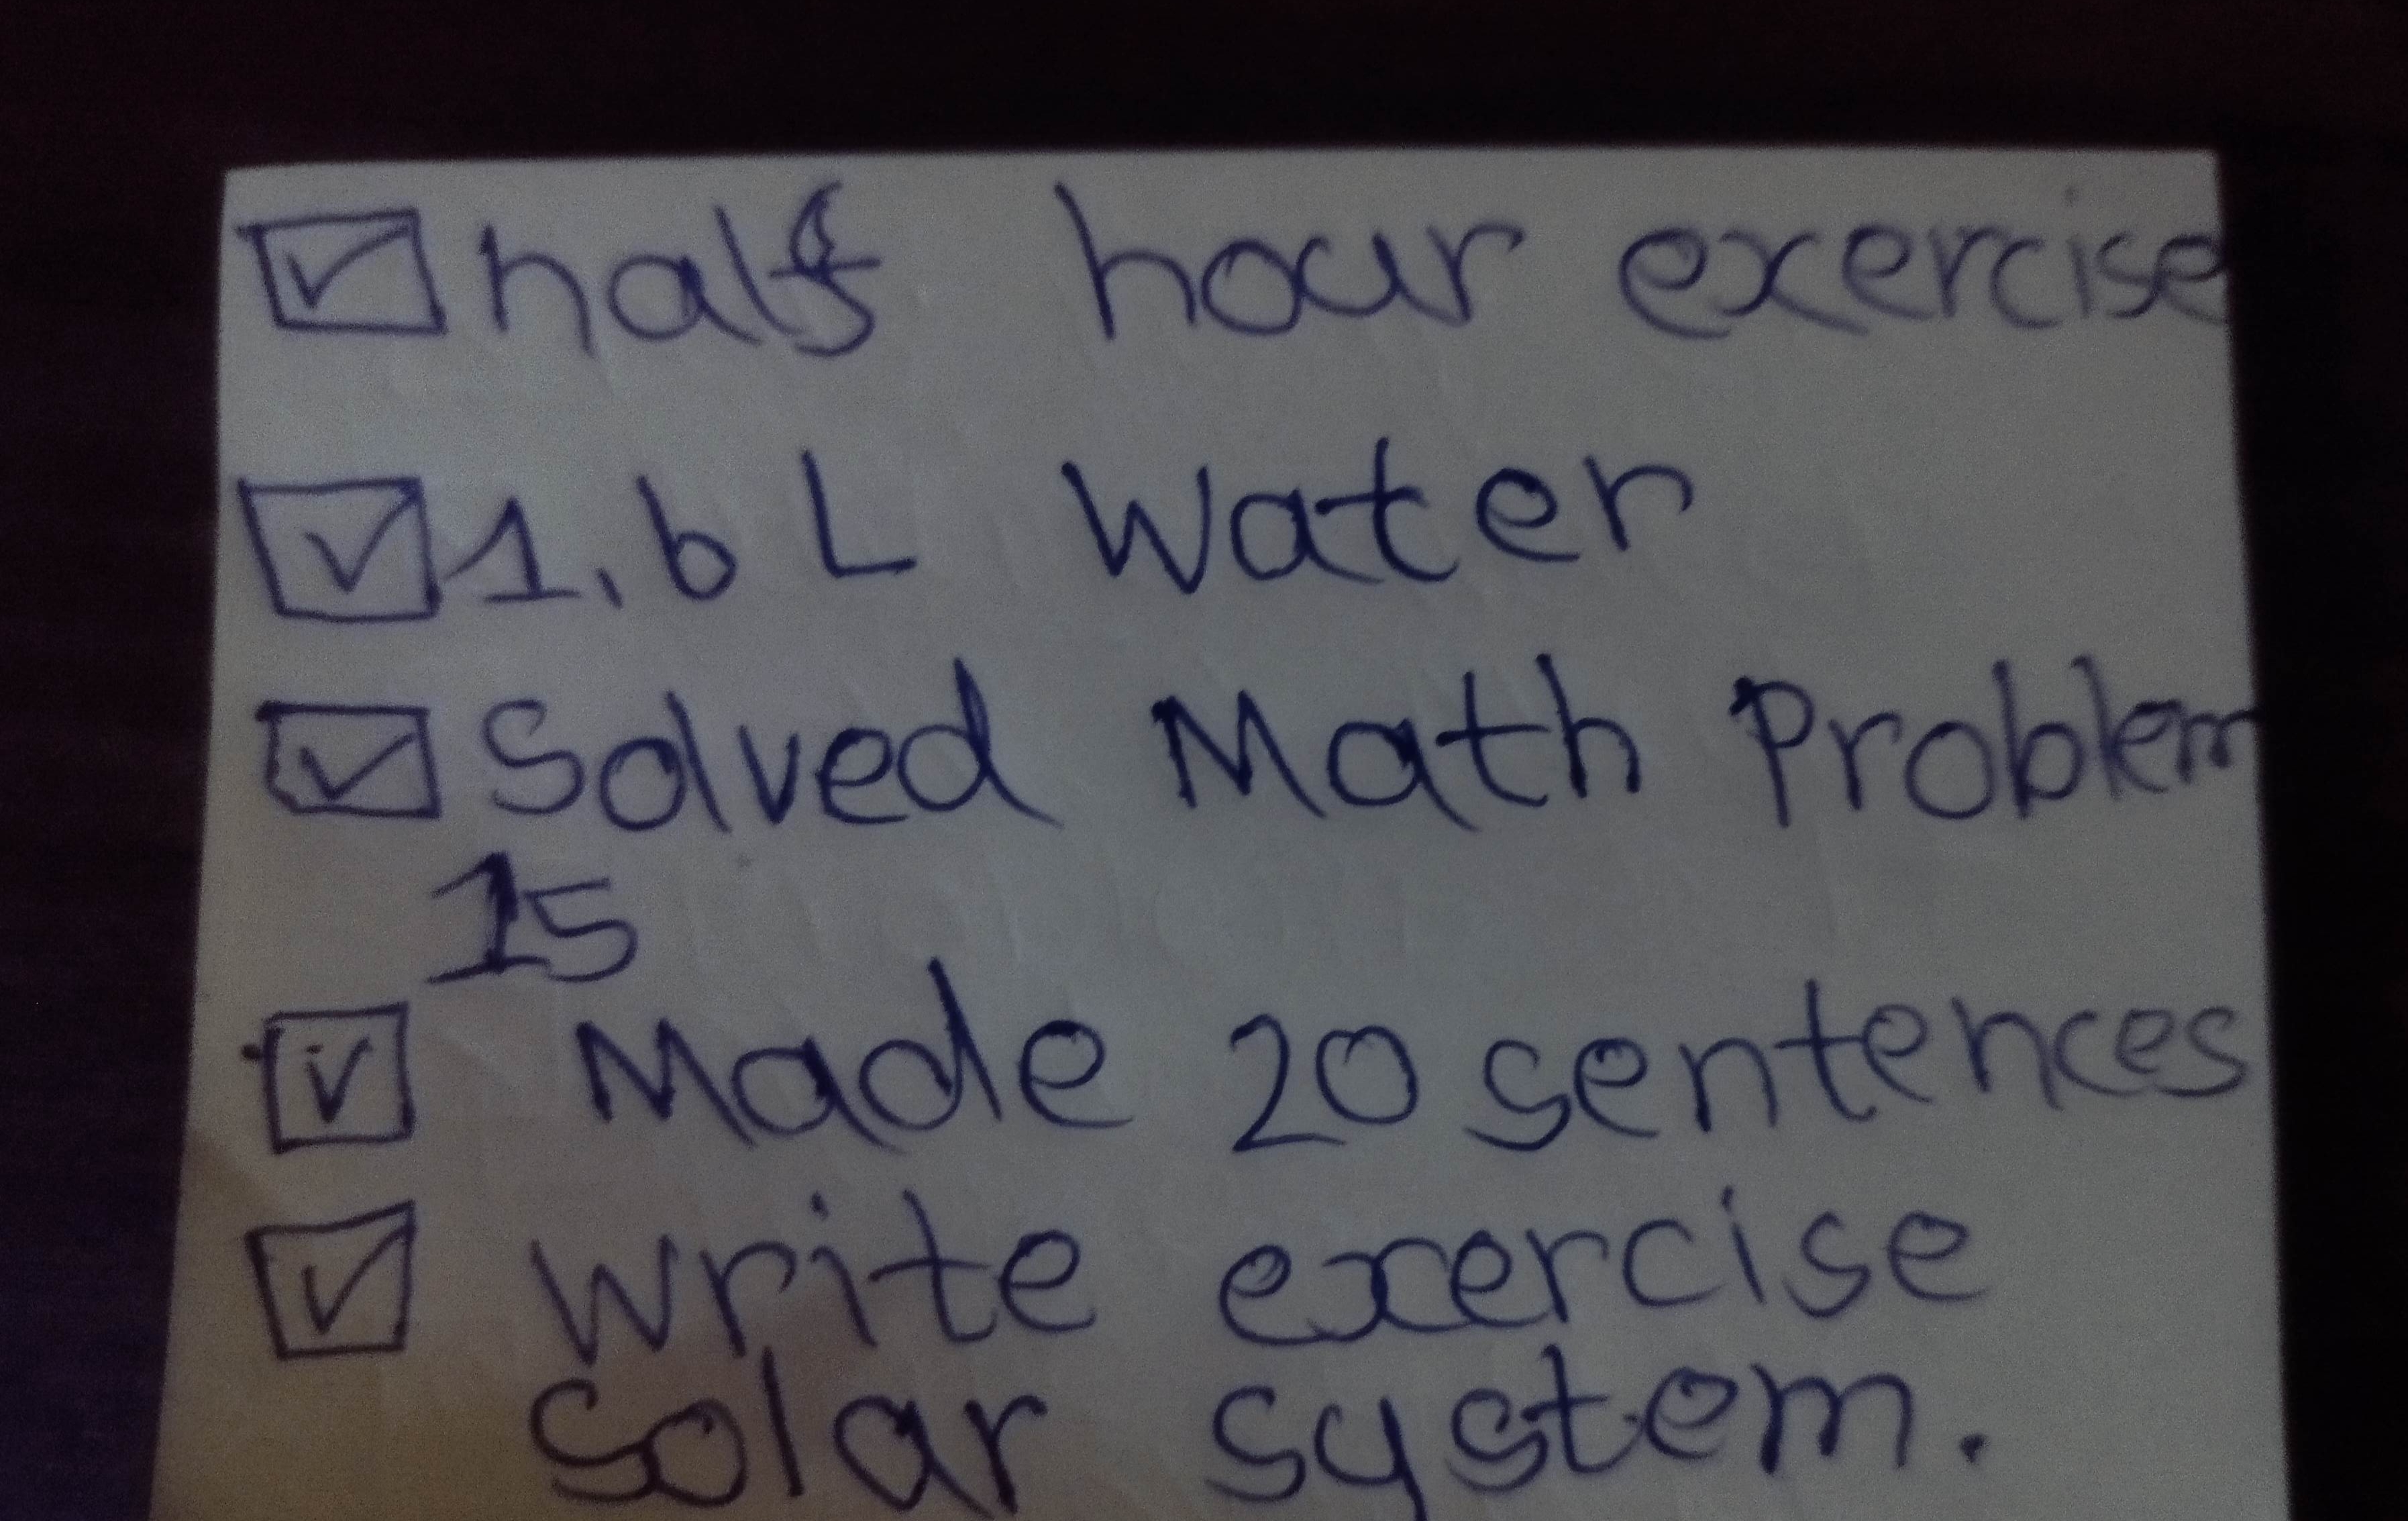 ☑ half hour exercise
☑ 1.6 L Water
☑ Solved Math Problem
15
☑ Made 20 sentences
☑ write exercise
solar system.